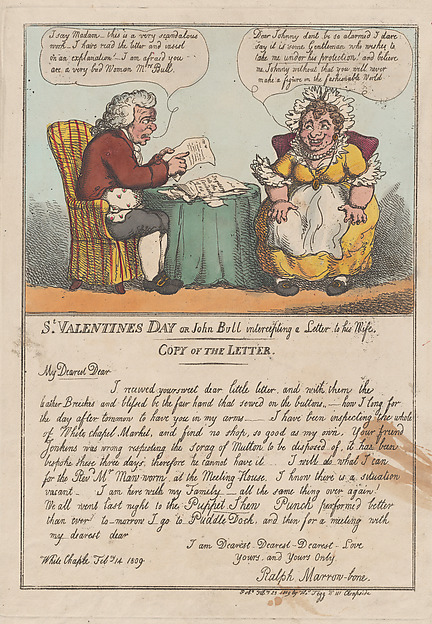 I say Madam this is a very scandalous
work I have read the letter and insist
on an explanation! I am afraid you
are a very bad Woman Mrs Bull.
Dear Johnny dont be so alarmed I dare
say it is some Gentleman who wishes to
take me under his protection! and believe
me Johnny without that you will never
make a figure in the fashionable World
St. VALENTINES DAY or John Bull intercepting a Letter to his Wife.
COPY OF THE LETTER.
My Dearest Dear
I recieved your sweet dear little letter, and with them the
Leather Breeches and blessed be the fair hand that sewed on the buttons,— how I long for
the day after tommorro to have you in my arms — I have been inspecting the whole
of White chapel Market, and find no shop, so good as my own. Your friend
Jenkens was wrong respecting the Scrag of Mutton to be disposed of, it has been
bespoke these three days, therefore he cannot have it... I will do what I can
for the Revd Mr Mawworm, at the Meeting House, I know there is a situation
vacant — I am here with my Family — all the same thing over again.
We all went last night to the Puppet Shew Punch performed better
than ever to-marrow I go to Puddle Dock, and then for a meeting with
my dearest dear
I am Dearest-Dearest-Dearest-Love
Yours, and Yours Only
White Chaple Feby 14 1809.
Ralph Marrow-bone.
Cheapside